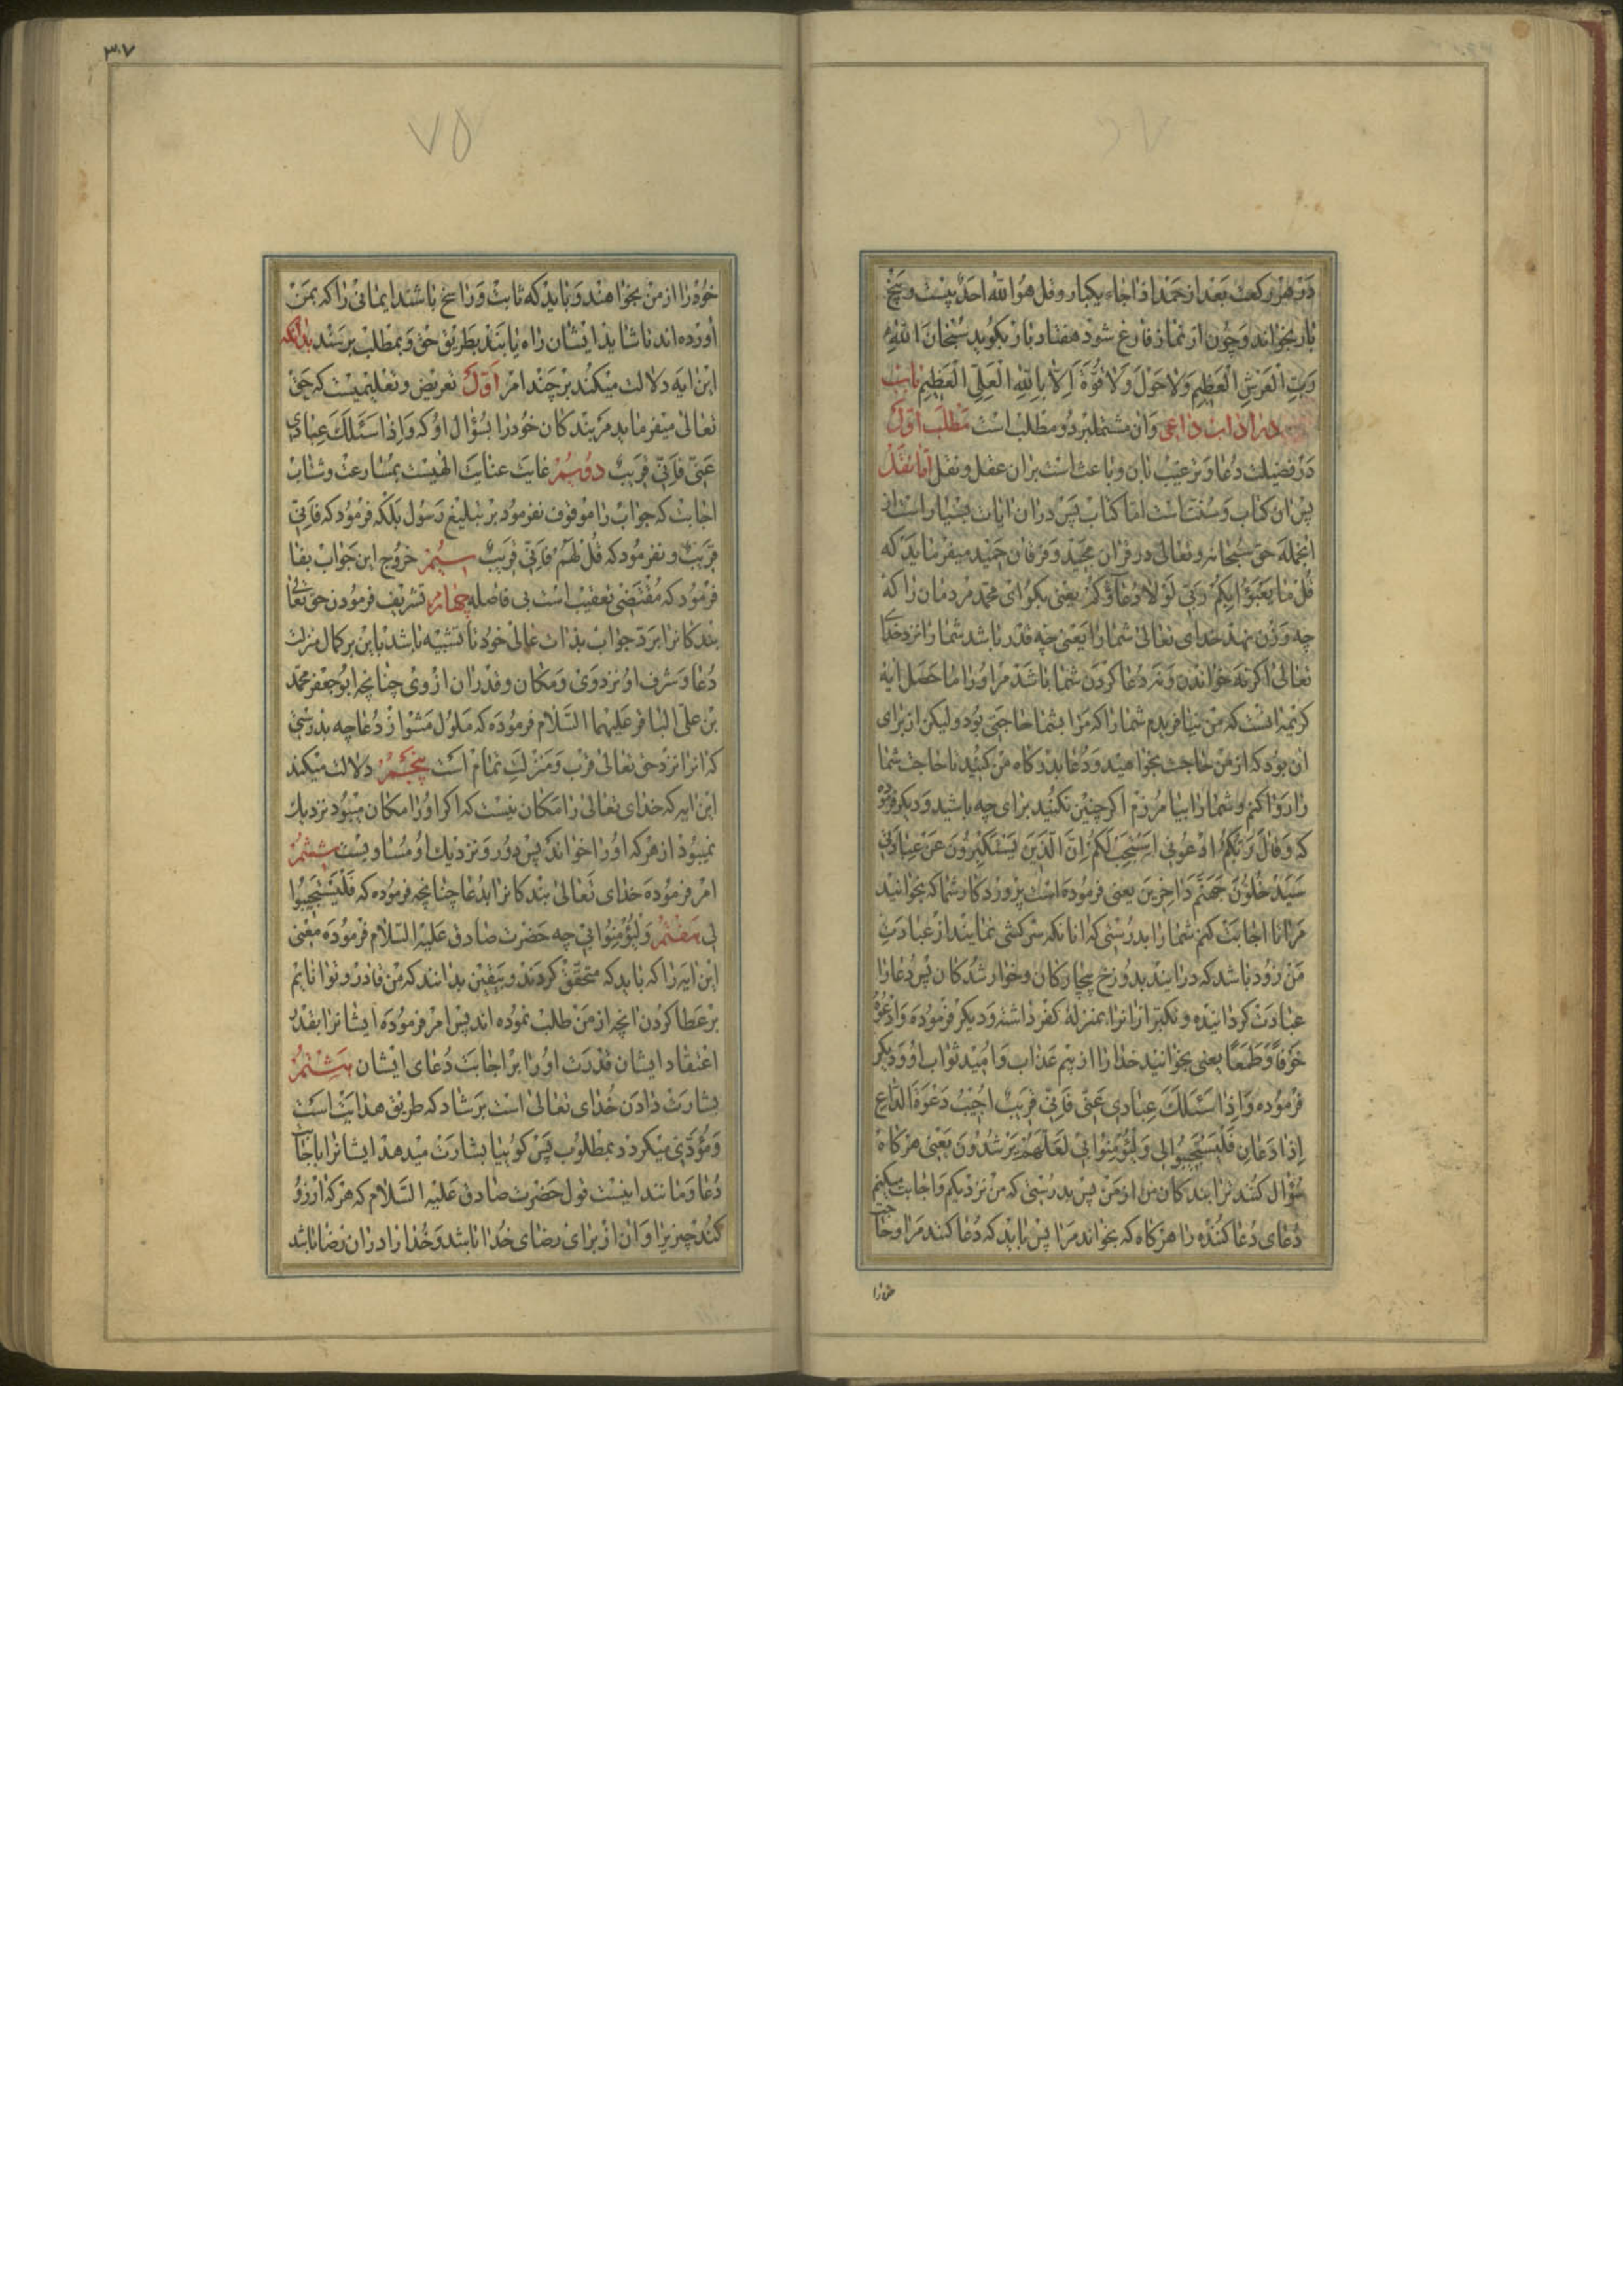 در هر رکعت بعد از حمد اذا جاء یکبار و قل هو الله احد بیست و پنج
بار بخواند و چون از نماز فارغ شود هفتاد بار بگوید سُبْحانَ اللهِ
رَبِّ الْعَرْشِ الْعَظِیمِ وَلا حَوْلَ وَلا قُوَّةَ اِلّا بِاللهِ الْعَلِیِّ الْعَظِیمِ باب
در اداب داعی و ان مشتملبر دو مطلب است مطلب اوّل
در فضیلت دُعا و ترغیب بان و باعث است بران عقل و نقل امّا نقل
پس ان کتاب و سُنّت است امّا کتاب پس دران ایات بسیار است از
انجمله حق سُبحانه و تعالی در قران مجید و فرقان حمید میفرماید که
قُلْ ما یَعْبَؤُا بِکُمْ رَبّی لَوْلا دُعآؤُکُمْ یعنی بکو ای محمّد مردمان را که
چه وزن نهد خدای تعالی شما را یعنی چه قدر باشد شما را نزد خدا
تعالی اکر نه خواندن و نه دُعا کردن شما باشد مر او را ما حصل ایه
کریمه انست که من نیافریدم شما را که مرا بشما حاجتی بود و لیکن از برای
ان بود که از من حاجت بخواهید و دُعا بدرکاه من کنید تا حاجت شما
را روا کنم و شما را بیامرزم اکر چنین نکنید برای چه باشید و دیکر فرموده
که وَقالَ رَبُّکُمُ ادْعُونی اَسْتَجِبْ لَکُمْ اِنَّ الَّذینَ یَسْتَکْبِرُونَ عَنْ عِبادَتی
سَیَدْخُلُونَ جَهَنَّمَ داخِرینَ یعنی فرموده است پروردکار شما که بخوانید
مرا تا اجابت کنم شما را بدرستی که انانکه سرکشی نمایند از عبادت
من زود باشد که درایند بدوزخ بیچارکان و خوار شدکان پس دُعا را
عبادت کردانیده و تکبّر ازانرا بمنزلهٔ کفر داشته و دیکر فرموده وَادْعُوهُ
خَوْفاً وَطَمَعاً یعنی بخوانید خدا را از بیم عذاب و امید ثواب او و دیکر
فرموده وَاِذا سَئَلَکَ عِبادی عَنّی فَاِنّی قَریبٌ اُجیبُ دَعْوَةَ الدّاعِ
اِذا دَعانِ فَلْیَسْتَجیبُوا لی وَلْیُؤْمِنُوا بی لَعَلَّهُمْ یَرْشُدُونَ یعنی هرکاه
سؤال کنند ترا بندکان من از من پس بدرستی که من نزدیکم و اجابت میکنم
دُعای دُعا کننده را هرکاه که بخواند مرا پس باید که دُعا کنند مرا و حاجت
۳۰۷
۷۵
خود را از من بخواهند و باید که ثابت و راسخ باشند ایمانی را که بمن
اورده‌اند تا شاید ایشان راه یابند بطریق حق و بمطلب برسند بدانکه
این ایه دلالت میکند بر چند امر اوّل تعریض و تعلیمیست که حق
تعالی میفرماید مر بندکان خود را بسؤال او که وَاِذا سَئَلَکَ عِبادی
عَنّی فَاِنّی قَریبٌ دویّم غایت عنایت الهیست بمسارعت و شتاب
اجابت که جواب را موقوف نفرمود بر تبلیغ رسول بلکه فرمود که فَاِنّی
قَریبٌ و نفرمود که قُلْ لَهُمْ فَاِنّی قَریبٌ سیّم خروج این جواب بفا
فرمود که مقتضی تعقیب است بی فاصله چهارم تشریف فرمودن حق تعالی
بندکانرا بردّ جواب بذات عالی خود تا تنبیه باشد باین بر کمال منزلت
دُعا و شرف او نزد وی و مکان و قدر ان از وی چنانچه ابو جعفر محمّد
بن علی الباقر علیهما السّلام فرموده که ملول مشو از دُعا چه بدرستی
که انرا نزد حق تعالی قرب و منزلت تمام است پنجم دلالت میکند
این ایه که خدای تعالی را مکان نیست که اکر او را مکان میبود نزدیک
نمیبود از هر که او را خواند پس دور و نزدیک او مساویست ششم
امر فرموده خدای تعالی بندکانرا بدُعا چنانچه فرموده که فَلْیَسْتَجیبُوا
لی هفتم وَلْیُؤْمِنُوا بی چه حضرت صادق علیه السّلام فرموده معنی
این ایه را که باید که متحقّق کردند و بیقین بدانند که من قادر و توانایم
بر عطا کردن انچه از من طلب نموده‌اند پس امر فرموده ایشانرا بقدر
اعتقاد ایشان قدرت او را بر اجابت دُعای ایشان هشتم
بشارت دادن خدای تعالی است برشاد که طریق هدایت است
و مؤدّی میکردد بمطلوب پس کوئیا بشارت میدهد ایشانرا باجابت
دُعا و مانند اینست قول حضرت صادق علیه السّلام که هرکه ارزو
کند چیزیرا و ان از برای رضای خدا باشد و خدا را دران رضا باشد